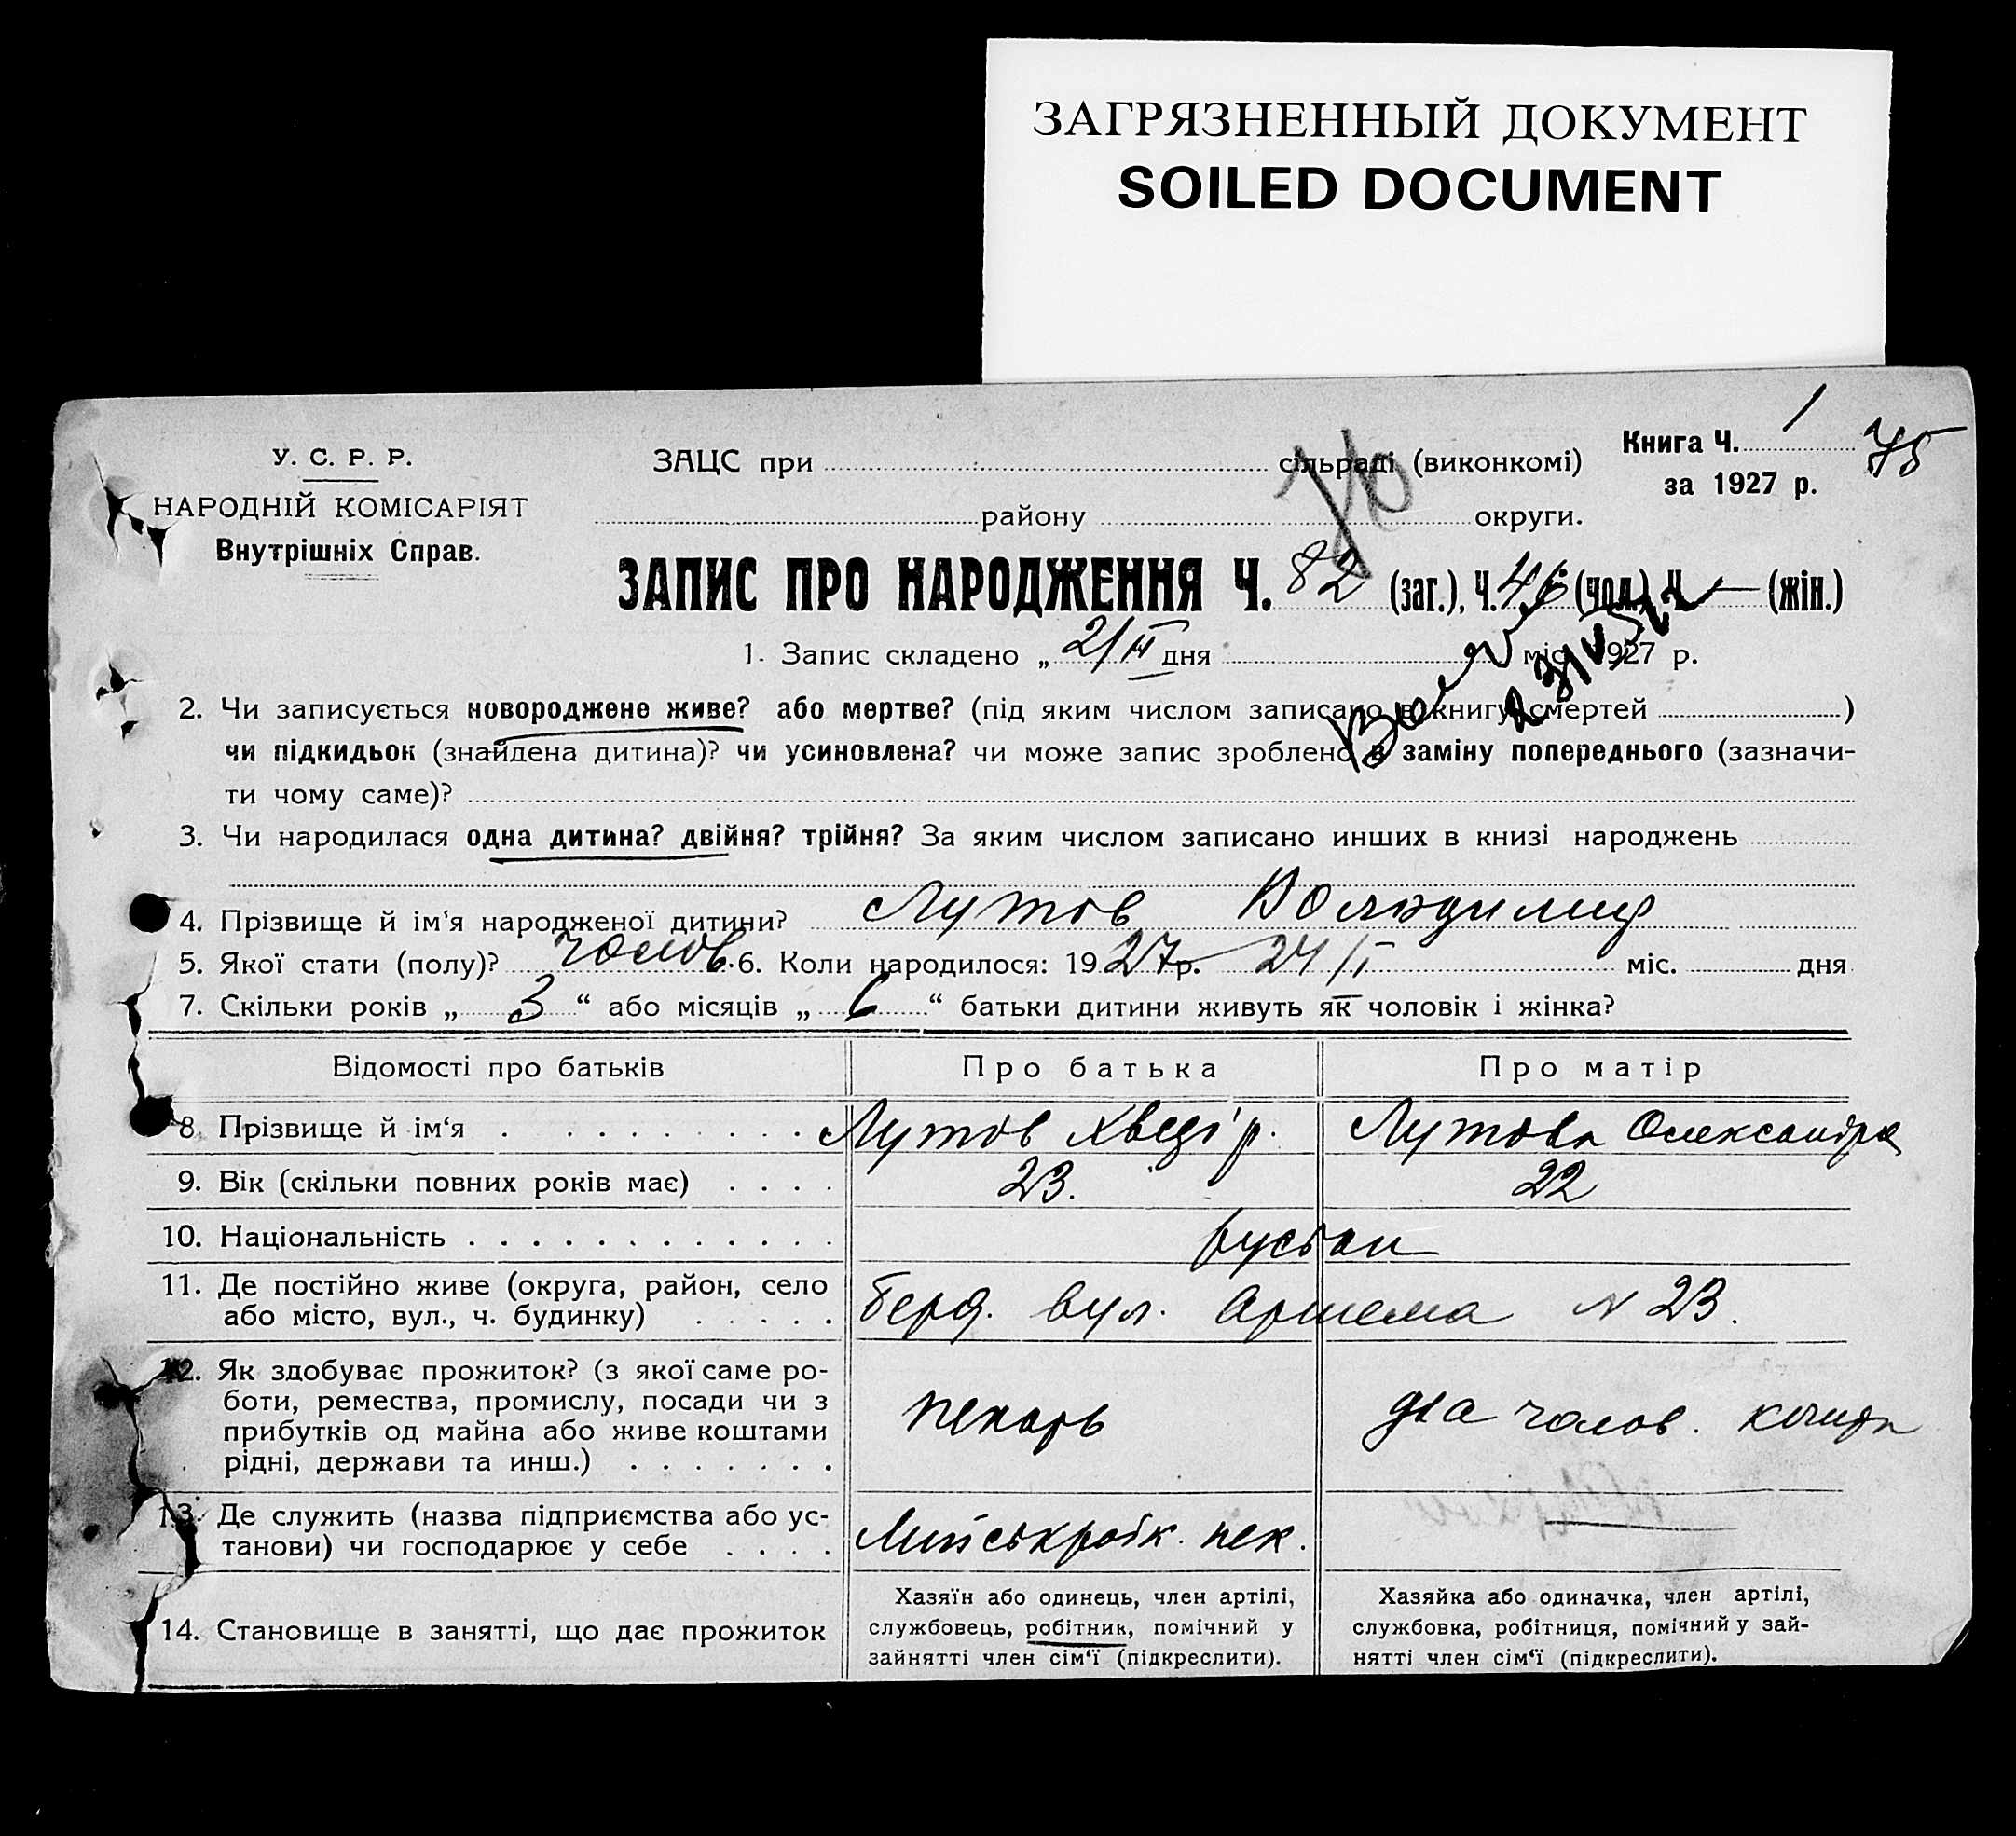 ЗАГРЯЗНЕННЫЙ ДОКУМЕНТ
SOILED DOCUMENT
У. С. Р. Р.
НАРОДНІЙ КОМІСАРІЯТ
Внутрішніх Справ.
ЗАЦС при сільраді (виконкомі)
Книга Ч. 1
75
за 1927 р.
району округи.
ЗАПИС ПРО НАРОДЖЕННЯ Ч. 82 (заг.), Ч. 46 (чол.) Ч. — (жін.)
1. Запис складено „ 2/II дня міс. 1927 р.
2. Чи записується новороджене живе? або мертве? (під яким числом записано в книгу смертей )
чи підкидьок (знайдена дитина)? чи усиновлена? чи може запис зроблено в заміну попереднього (зазначи-
ти чому саме)?
3. Чи народилася одна дитина? двійня? трійня? За яким числом записано инших в книзі народжень
4. Прізвище й ім‘я народженої дитини? Лутов Володимир
5. Якої стати (полу)? чолов. 6. Коли народилося: 1927 р. 24/I міс. дня
7. Скільки років „ 3 “ або місяців „ 6 “ батьки дитини живуть як чоловік і жінка?
Відомості про батьків Про батька Про матір
8. Прізвище й ім‘я Лутов Хведір. Лутова Олександра
9. Вік (скільки повних років має) 23. 22
10. Національність руські
11. Де постійно живе (округа, район, село
або місто, вул., ч. будинку) Берд. вул. Артема N 23.
12. Як здобуває прожиток? (з якої саме ро-
боти, ремества, промислу, посади чи з
прибутків од майна або живе коштами
рідні, держави та инш.)
пекарь
на чолов. кошти
13. Де служить (назва підприємства або ус-
танови) чи господарює у себе
пек. —
14. Становище в занятті, що дає прожиток
Хазяїн або одинець, член артілі,
службовець, робітник, помічний у
зайнятті член сім‘ї (підкреслити).
Хазяйка або одиначка, член артілі,
службовка, робітниця, помічний у зай-
нятті член сім‘ї (підкреслити).